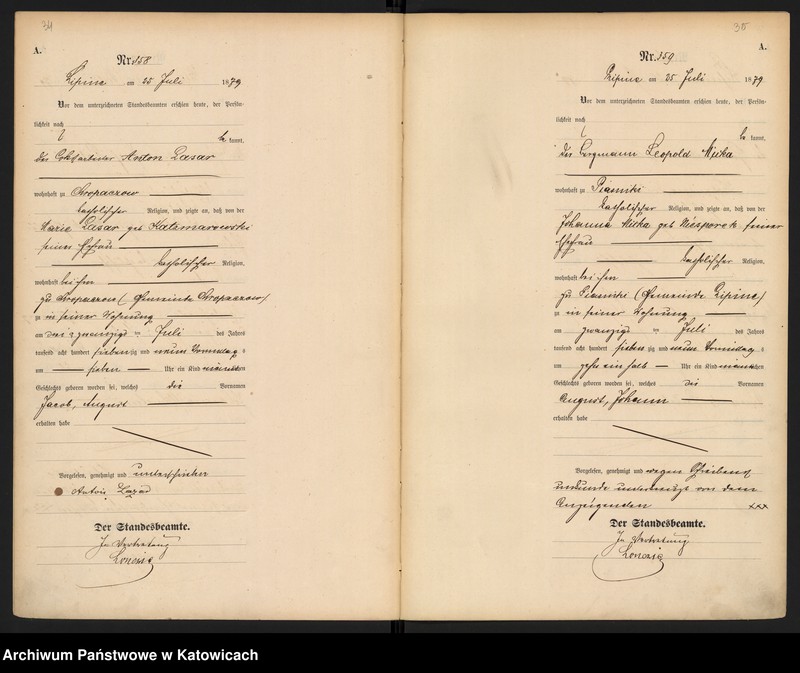 34
A.
Nr. 158
Lipine am 25 Juli 1879
Vor dem unterzeichneten Standesbeamten erschien heute, der Persön-
lichkeit nach
be kannt,
der Anton Lasar
wohnhaft zu Chropaczow
katholischer Religion, und zeigte an, daß von der
Marie Lasar geb
seiner Ehefrau
katholischer Religion,
wohnhaft bei ihm
zu Chropaczow (Gemeinde Chropaczow)
zu in seiner Wohnung
am drei zwanzigs ten Juli des Jahres
tausend acht hundert siebenzig und neun Vormittag s
um sieben Uhr ein Kind männlichen
Geschlechts geboren worden sei, welches die Vornamen
Jacob, August
erhalten habe
Vorgelesen, genehmigt und unterschrieben
Der Standesbeamte.
In Vertretung
35
A.
Nr. 159
Lipine am 25 Juli 1879
Vor dem unterzeichneten Standesbeamten erschien heute, der Persön-
lichkeit nach
be kannt,
der Bergmann Leopold
wohnhaft zu Piasniki
katholischer Religion, und zeigte an, daß von der
Johanna geb Niesporek seiner
Ehefrau
katholischer Religion,
wohnhaft bei ihm
zu Piasniki (Gemeinde Lipine)
zu in seiner Wohnung
am zwanzigs ten Juli des Jahres
tausend acht hundert sieben zig und neun Vormittag s
um zehn ein halb Uhr ein Kind männlichen
Geschlechts geboren worden sei, welches die Vornamen
August, Johann
erhalten habe
Vorgelesen, genehmigt und wegen Schreibens
unkunde unterkreuzt von dem
Anzeigenden xxx
Der Standesbeamte.
In Vertretung
Archiwum Państwowe w Katowicach